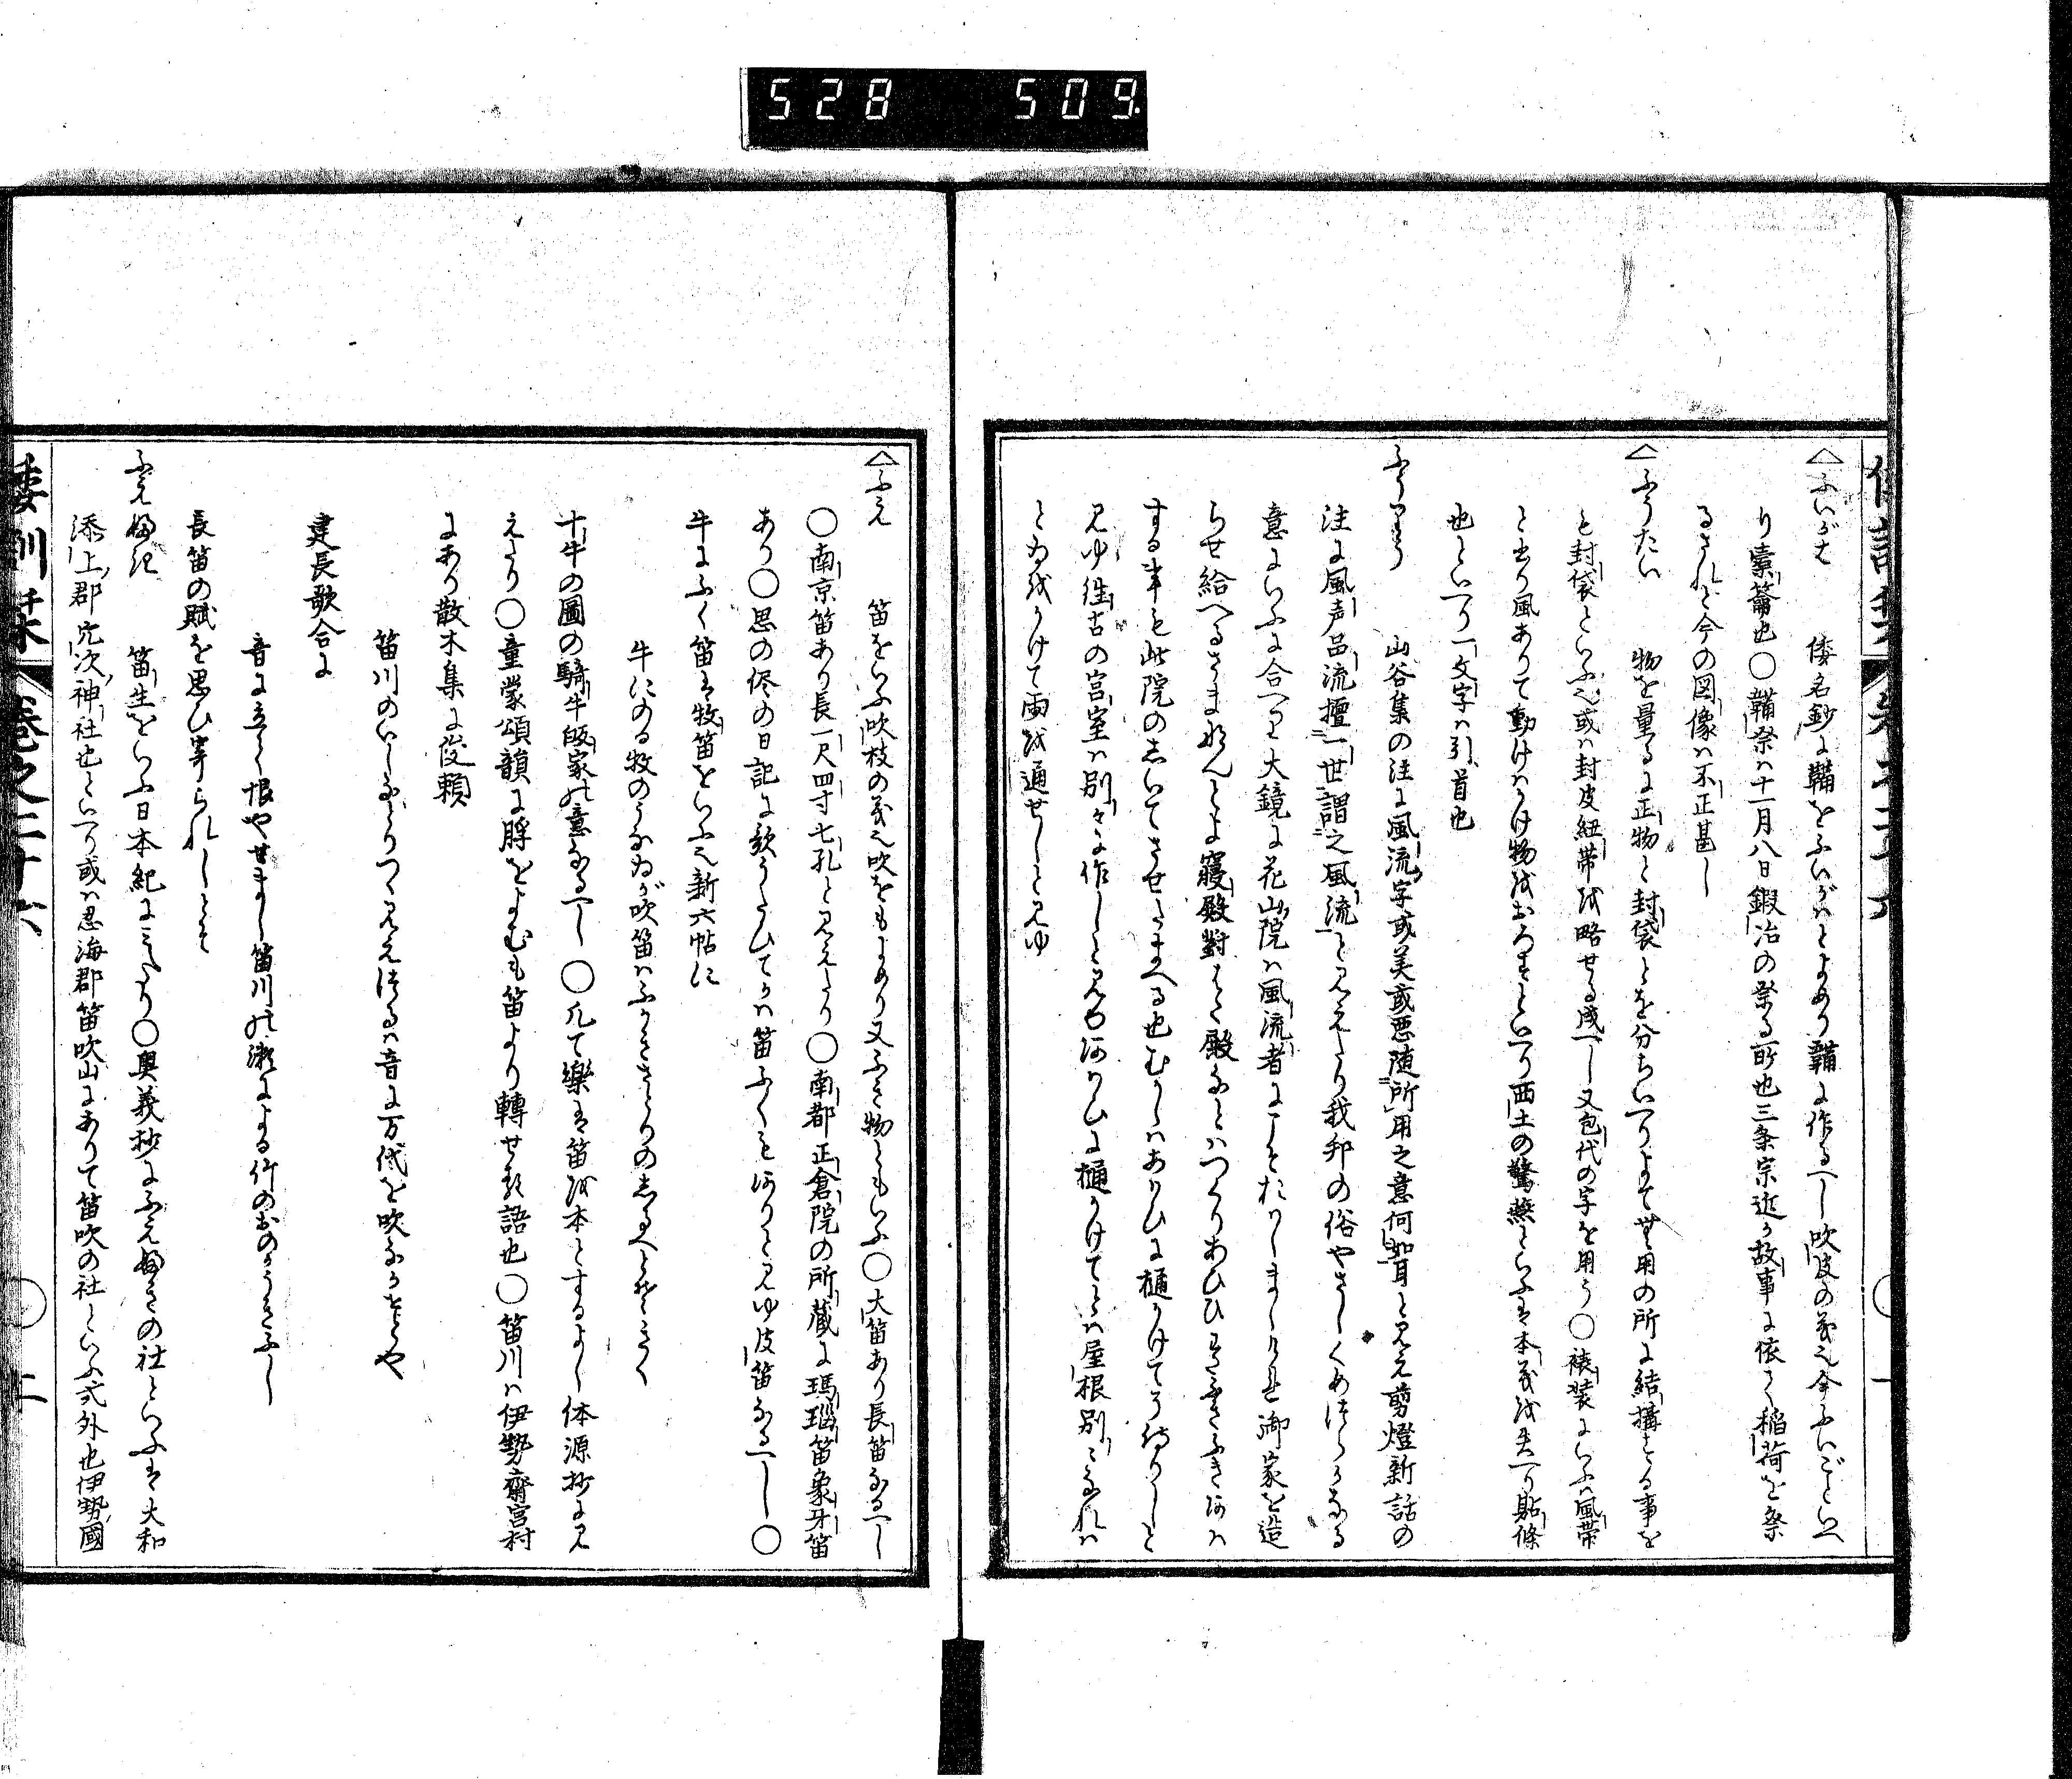 528 509
△ふいがは 倭名鈔に鞴をふいがはとよめり鞴に作るべし吹皮の義也今ふいごといへ
り橐籥也○鞴祭は十一月八日鍛冶の祭る所也三条宗近が故事に依て稲荷を祭
るされど今の図像は不正甚し
△ふうたい 物を量るに正物と封袋とを分ちいへりよて無用の所に結搆する事を
も封袋といふ也或は封皮紐帯を略せる成べし又包代の字を用う○裱装にいふは風帯
と書り風ありて動けはかけ物をおろすといへり西土の驚燕といふは本義を失へり貼條
也といへり一文字は引首也
ふうりう 山谷集の注に風流字或美或悪随所用之意何如耳と見え剪燈新話の
注に風声品流擅一世謂之風流と見えたり我邦の俗やさしくめづらかなる
意にいふに合へり大鏡に花山院は風流者にこそおはしましけれ御家を造
らせ給へるさまなんとよ寝殿對はた殿なとはつくりあひひはたふきふきあは
する事も此院のしいてさせたまへる也むかしはあはひに樋かけてそ侍りしと
見ゆ往古の宮室は別々に作しと見ゆあはひに樋かけてとは屋根別々なれは
とゐをかけて雨を通せしと見ゆ
△ふえ 笛をいふ吹枝の義也吹をもよめり又ふき物ともいふ○大笛あり長笛なるべし
○南京笛あり長一尺四寸七孔と見えたり○南都正倉院の所蔵に瑪瑙笛象牙笛
あり○思の侭の日記に歌うたひてかは笛ふくもありと見ゆ皮笛なるべし○
牛にふく笛は牧笛をいふ也新六帖に
牛にのる牧のうなゐが吹笛はふかきさとりのしるへとそきく
十牛の圖の騎牛皈家の意なるべし○凡て樂は笛を本とするよし体源抄に見
えたり○童蒙頌韻に脬をよむも笛より轉せる語也○笛川は伊勢齋宮村
にあり散木集に俊頼
笛川のいしなとりつゝ見え渡るは音に万代を吹なかせとや
建長歌合に
音に立て恨やせまし笛川の瀬による竹のおのかうきふし
長笛の賦を思ひ寄られしとそ
ふえふき 笛生をいふ日本紀にみえたり○奥義抄にふえふきの社といふは大和
添上郡穴次神社也といへり或は忍海郡笛吹山にありて笛吹の社といふ式外也伊勢國
倭訓栞 巻之二十六 ○ 二